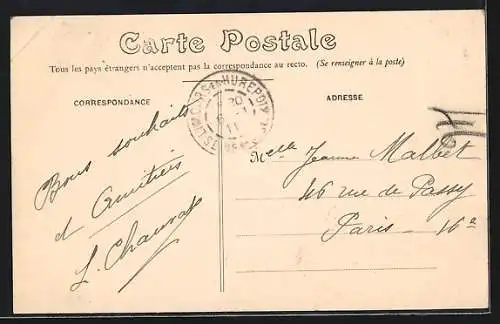 Carte Postale
Tous les pays étrangers n'acceptent pas la correspondance au recto. (Se renseigner à la poste)
CORRESPONDANCE
ADRESSE
HUREPOIX
20
11
Bons souhaits
et Amitiés
L. Chauvat
Melle Jeanne Malbet
46 rue de Passy
Paris - 16e